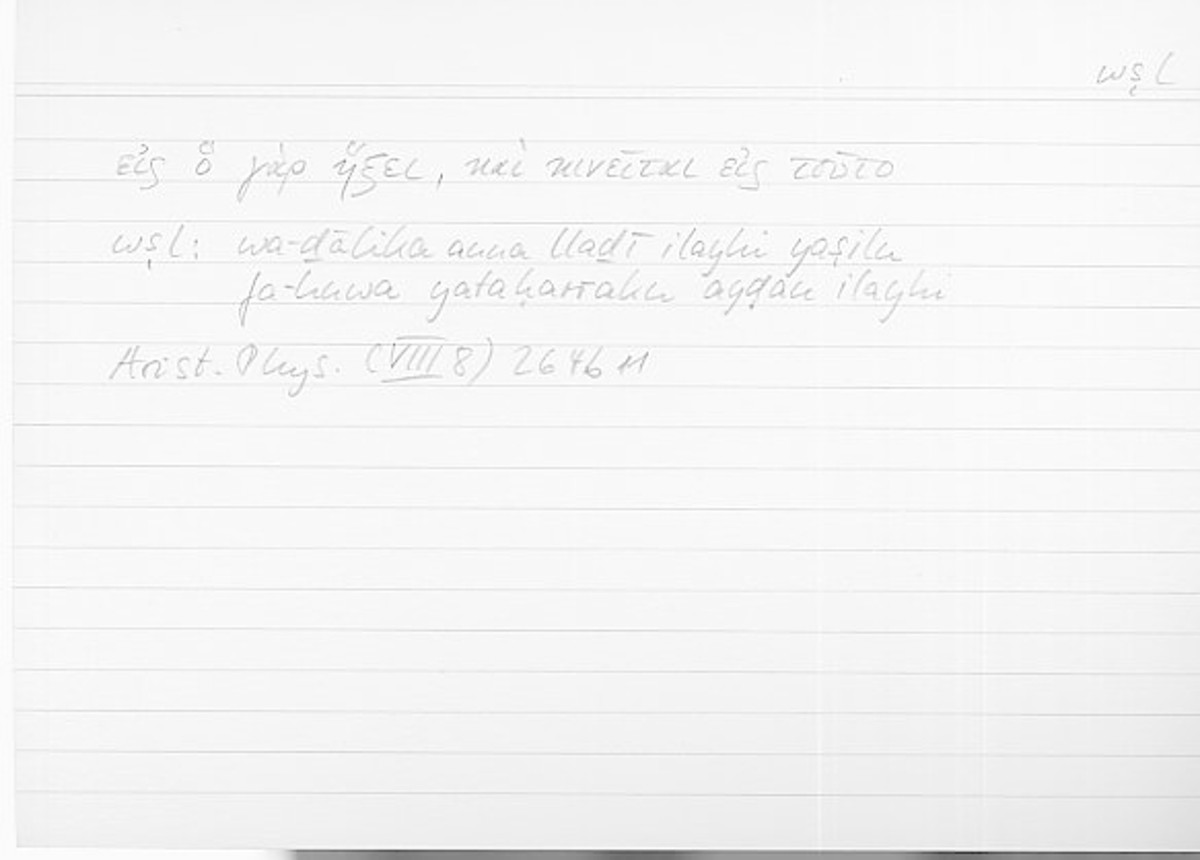 wṣl
εἰς ὃ γὰρ ἥξει, καὶ κινεῖται εἰς τοῦτο
wṣl: wa-ḏālika anna lladī ilayhi yaṣilu
fa-huwa yataḥarraku ayḍan ilayhi
Arist. Phys. (VIII 8) 264b11